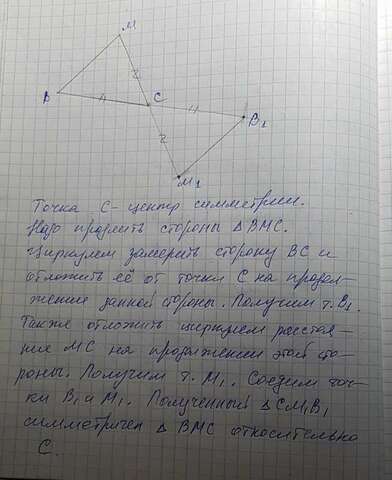 M
B 4 2 C 4 B₁
2
M₁
Точка С - центр симметрии.
Надо продлить стороны ΔВМС.
Циркулем замерить сторону ВС и
отложить её от точки С на продол-
жение данной стороны. Получим т. В₁.
Также отложить циркулем расстоя-
ние МС на продолжении этой сто-
роны. Получим т. М₁. Соедим точ-
ки В₁ и М₁. Полученный ΔСМ₁В₁
симметричен Δ ВМС относительно
С.